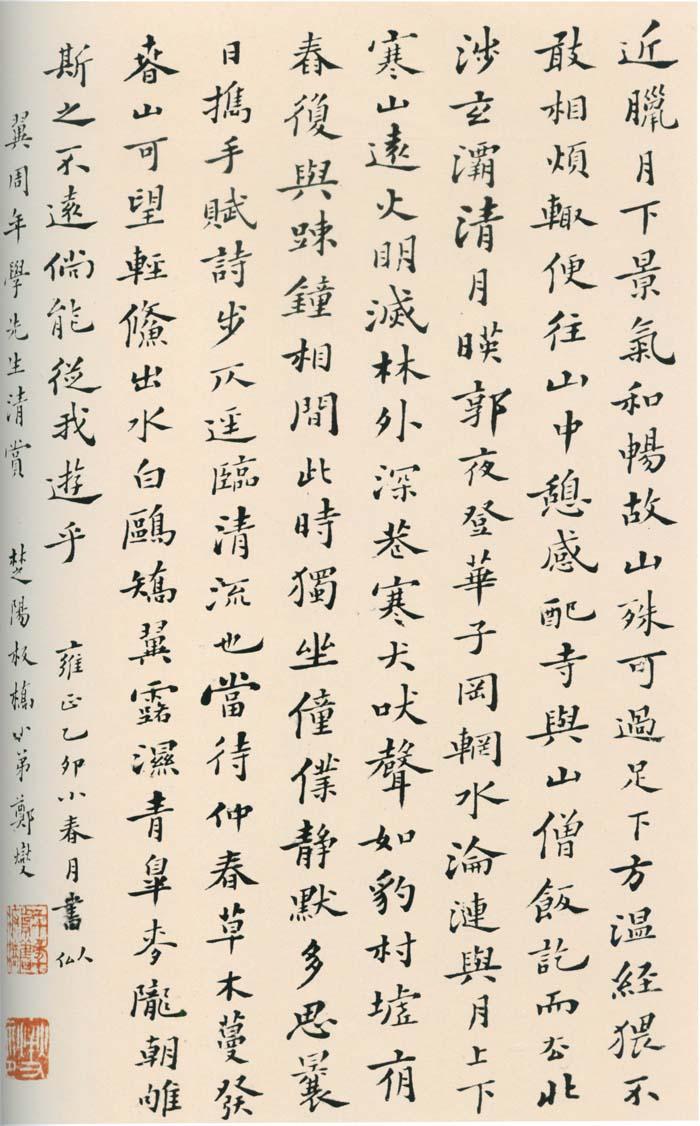 近臘月下景氣和暢故山殊可過足下方温經猥不
敢相煩輒便往山中憩感配寺與山僧飯訖而去北
涉玄灞清月暎郭夜登華子岡輞水淪漣與月上下
寒山遠火明滅林外深巷寒犬吠聲如豹村墟夜
舂復與踈鐘相間此時獨坐僮僕静默多思曩
日攜手賦詩步仄逕臨清流也當待仲春草木蔓發
春山可望輕鯈出水白鷗矯翼露濕青皐麥隴朝雊
斯之不遠倘能從我遊乎 雍正乙卯小春月書
翼周年學先生清賞 楚陽板橋小弟鄭燮